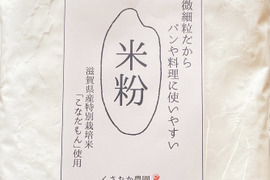 微細粒だから
パンや料理に使いやすい
米粉
滋賀県産特別栽培米
「こなだもん」使用
くさなか農園